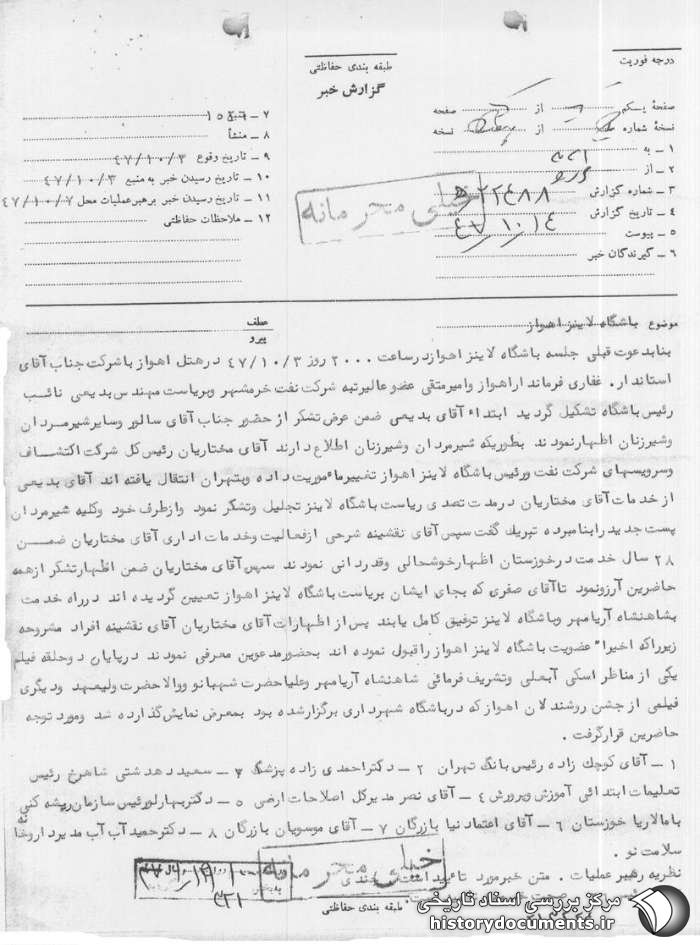 درجه فوریت
طبقه بندی حفاظتی
گزارش خبر
صفحهٔ یکم از صفحه
نسخهٔ شماره از نسخه
۱ ـ به
۲ ـ از
۳ ـ شماره گزارش ۲۲۴۸۸
۴ ـ تاریخ گزارش ۴۷/۱۰/۱۴
۵ ـ پیوست
۶ ـ گیرندگان خبر
۷ ـ
۸ ـ منشأ
۹ ـ تاریخ وقوع ۴۷/۱۰/۳
۱۰ ـ تاریخ رسیدن خبر به منبع ۴۷/۱۰/۳
۱۱ ـ تاریخ رسیدن خبر برهبر عملیات محل ۴۷/۱۰/۷
۱۲ ـ ملاحظات حفاظتی
خیلی محرمانه
موضوع باشگاه لاینز اهواز
عطف
پیرو
بنابدعوت قبلی جلسه باشگاه لاینز اهوازدرساعت ۲۰۰۰ روز ۴۷/۱۰/۳ درهتل اهواز باشرکت جناب آقای
استاندار. غفاری فرماندار اهواز وامیرمتقی عضو عالیرتبه شرکت نفت خرمشهر وبریاست مهندس بدیعی نائب
رئیس باشگاه تشکیل گردید ابتداء آقای بدیعی ضمن عرض تشکر از حضور جناب آقای سالور وسایرشیرمردان
وشیرزنان اظهارنمودند بطوریکه شیرمردان وشیرزنان اطلاع دارند آقای مختاریان رئیس کل شرکت اکتشاف
وسرویسهای شرکت نفت ورئیس باشگاه لاینز اهواز تغییرماموریت داده وبتهران انتقال یافته اند آقای بدیعی
از خدمات آقای مختاریان درمدت تصدی ریاست باشگاه لاینز تجلیل وتشکر نمود وازطرف خود وکلیه شیرمردان
پست جدید رابنامبرده تبریک گفت سپس آقای نقشینه شرحی ازفعالیت وخدمات اداری آقای مختاریان ضمن
۲۸ سال خدمت درخوزستان اظهارخوشحالی وقدردانی نمودند سپس آقای مختاریان ضمن اظهارتشکر ازهمه
حاضرین آرزونمود تاآقای صفری که بجای ایشان بریاست باشگاه لاینز اهواز تعیین گردیده اند درراه خدمت
بشاهنشاه آریامهر وباشگاه لاینز توفیق کامل یابند پس از اظهارات آقای مختاریان آقای نقشینه افراد مشروحه
زیرراکه اخیرا" عضویت باشگاه لاینز اهواز راقبول نموده اند بحضورمدعوین معرفی نمودند درپایان دوحلقه فیلم
یکی از مناظر اسکی آبعلی وتشریف فرمائی شاهنشاه آریامهر وعلیاحضرت شهبانو ووالاحضرت ولیعهد ودیگری
فیلمی از جشن روشندلان اهواز که درباشگاه شهرداری برگزارشده بود بمعرض نمایش گذارده شد ومورد توجه
حاضرین قرارگرفت .
۱ ـ آقای کوچک زاده رئیس بانک تهران ۲ ـ دکتراحمدی زاده پزشک ۳ ـ سعید دهدشتی شاهرخ رئیس
تعلیمات ابتدائی آموزش وپرورش ۴ ـ آقای نصر مدیرکل اصلاحات ارضی ۵ ـ دکتربهارلو رئیس سازمان ریشه کنی
بامالاریا خوزستان ۶ ـ آقای اعتماد نیا بازرگان ۷ ـ آقای موسویان بازرگان ۸ ـ دکترحمید آب آب مدیرداروخانه
سلامت نو .
نظریه رهبر عملیات . متن خبرمورد تائید است.
خیلی محرمانه
طبقه بندی حفاظتی
مرکز بررسی اسناد تاریخی
historydocuments.ir